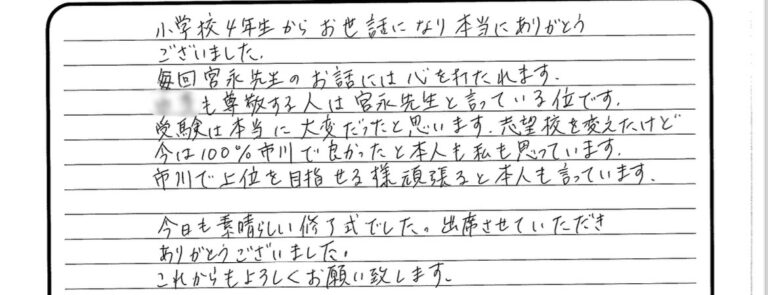 小学校4年生からお世話になり本当にありがとう
ございました.
毎回宮永先生のお話には心を打たれます.
も尊敬する人は宮永先生と言っている位です.
受験は本当に大変だったと思います.志望校を変えたけど
今は100%市川で良かったと本人も私も思っています.
市川で上位を目指せる様頑張ると本人も言っています.
今日も素晴らしい修了式でした。出席させていただき
ありがとうございました.
これからもよろしくお願い致します.